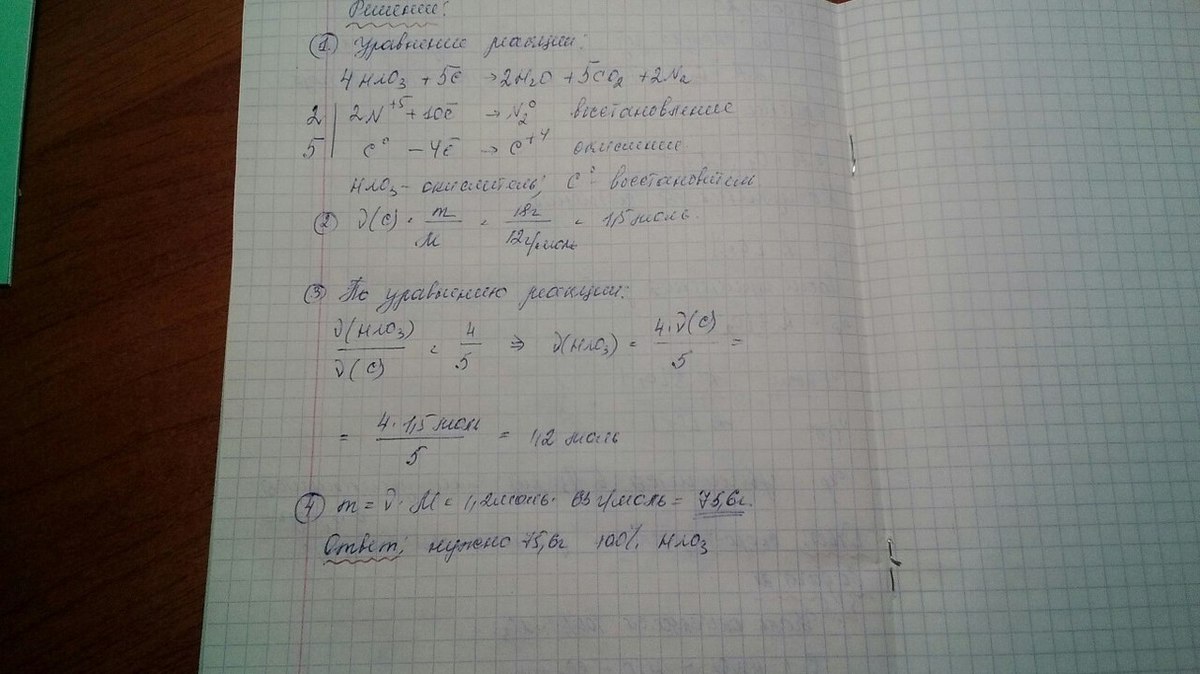 Решение:
① Уравнение реакции:
4HNO₃ + 5C → 2H₂O + 5CO₂ + 2N₂
2 | 2N⁺⁵ + 10ē → N₂⁰ восстановление
5 | C⁰ - 4ē → C⁺⁴ окисление
HNO₃ - окислитель; C⁰ - восстановитель
② ν(C) = m/M = 18г/12г/моль = 1,5 моль.
③ По уравнению реакции:
ν(HNO₃)/ν(C) = 4/5 ⇒ ν(HNO₃) = 4·ν(C)/5 =
= 4·1,5 моль/5 = 1,2 моль
④ m = ν·M = 1,2моль · 63 г/моль = 75,6г.
Ответ: нужно 75,6г 100% HNO₃